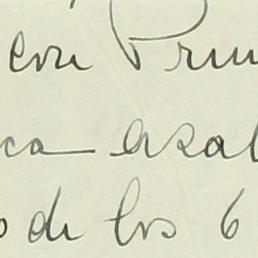 con Prim
ca asal
o de los 6